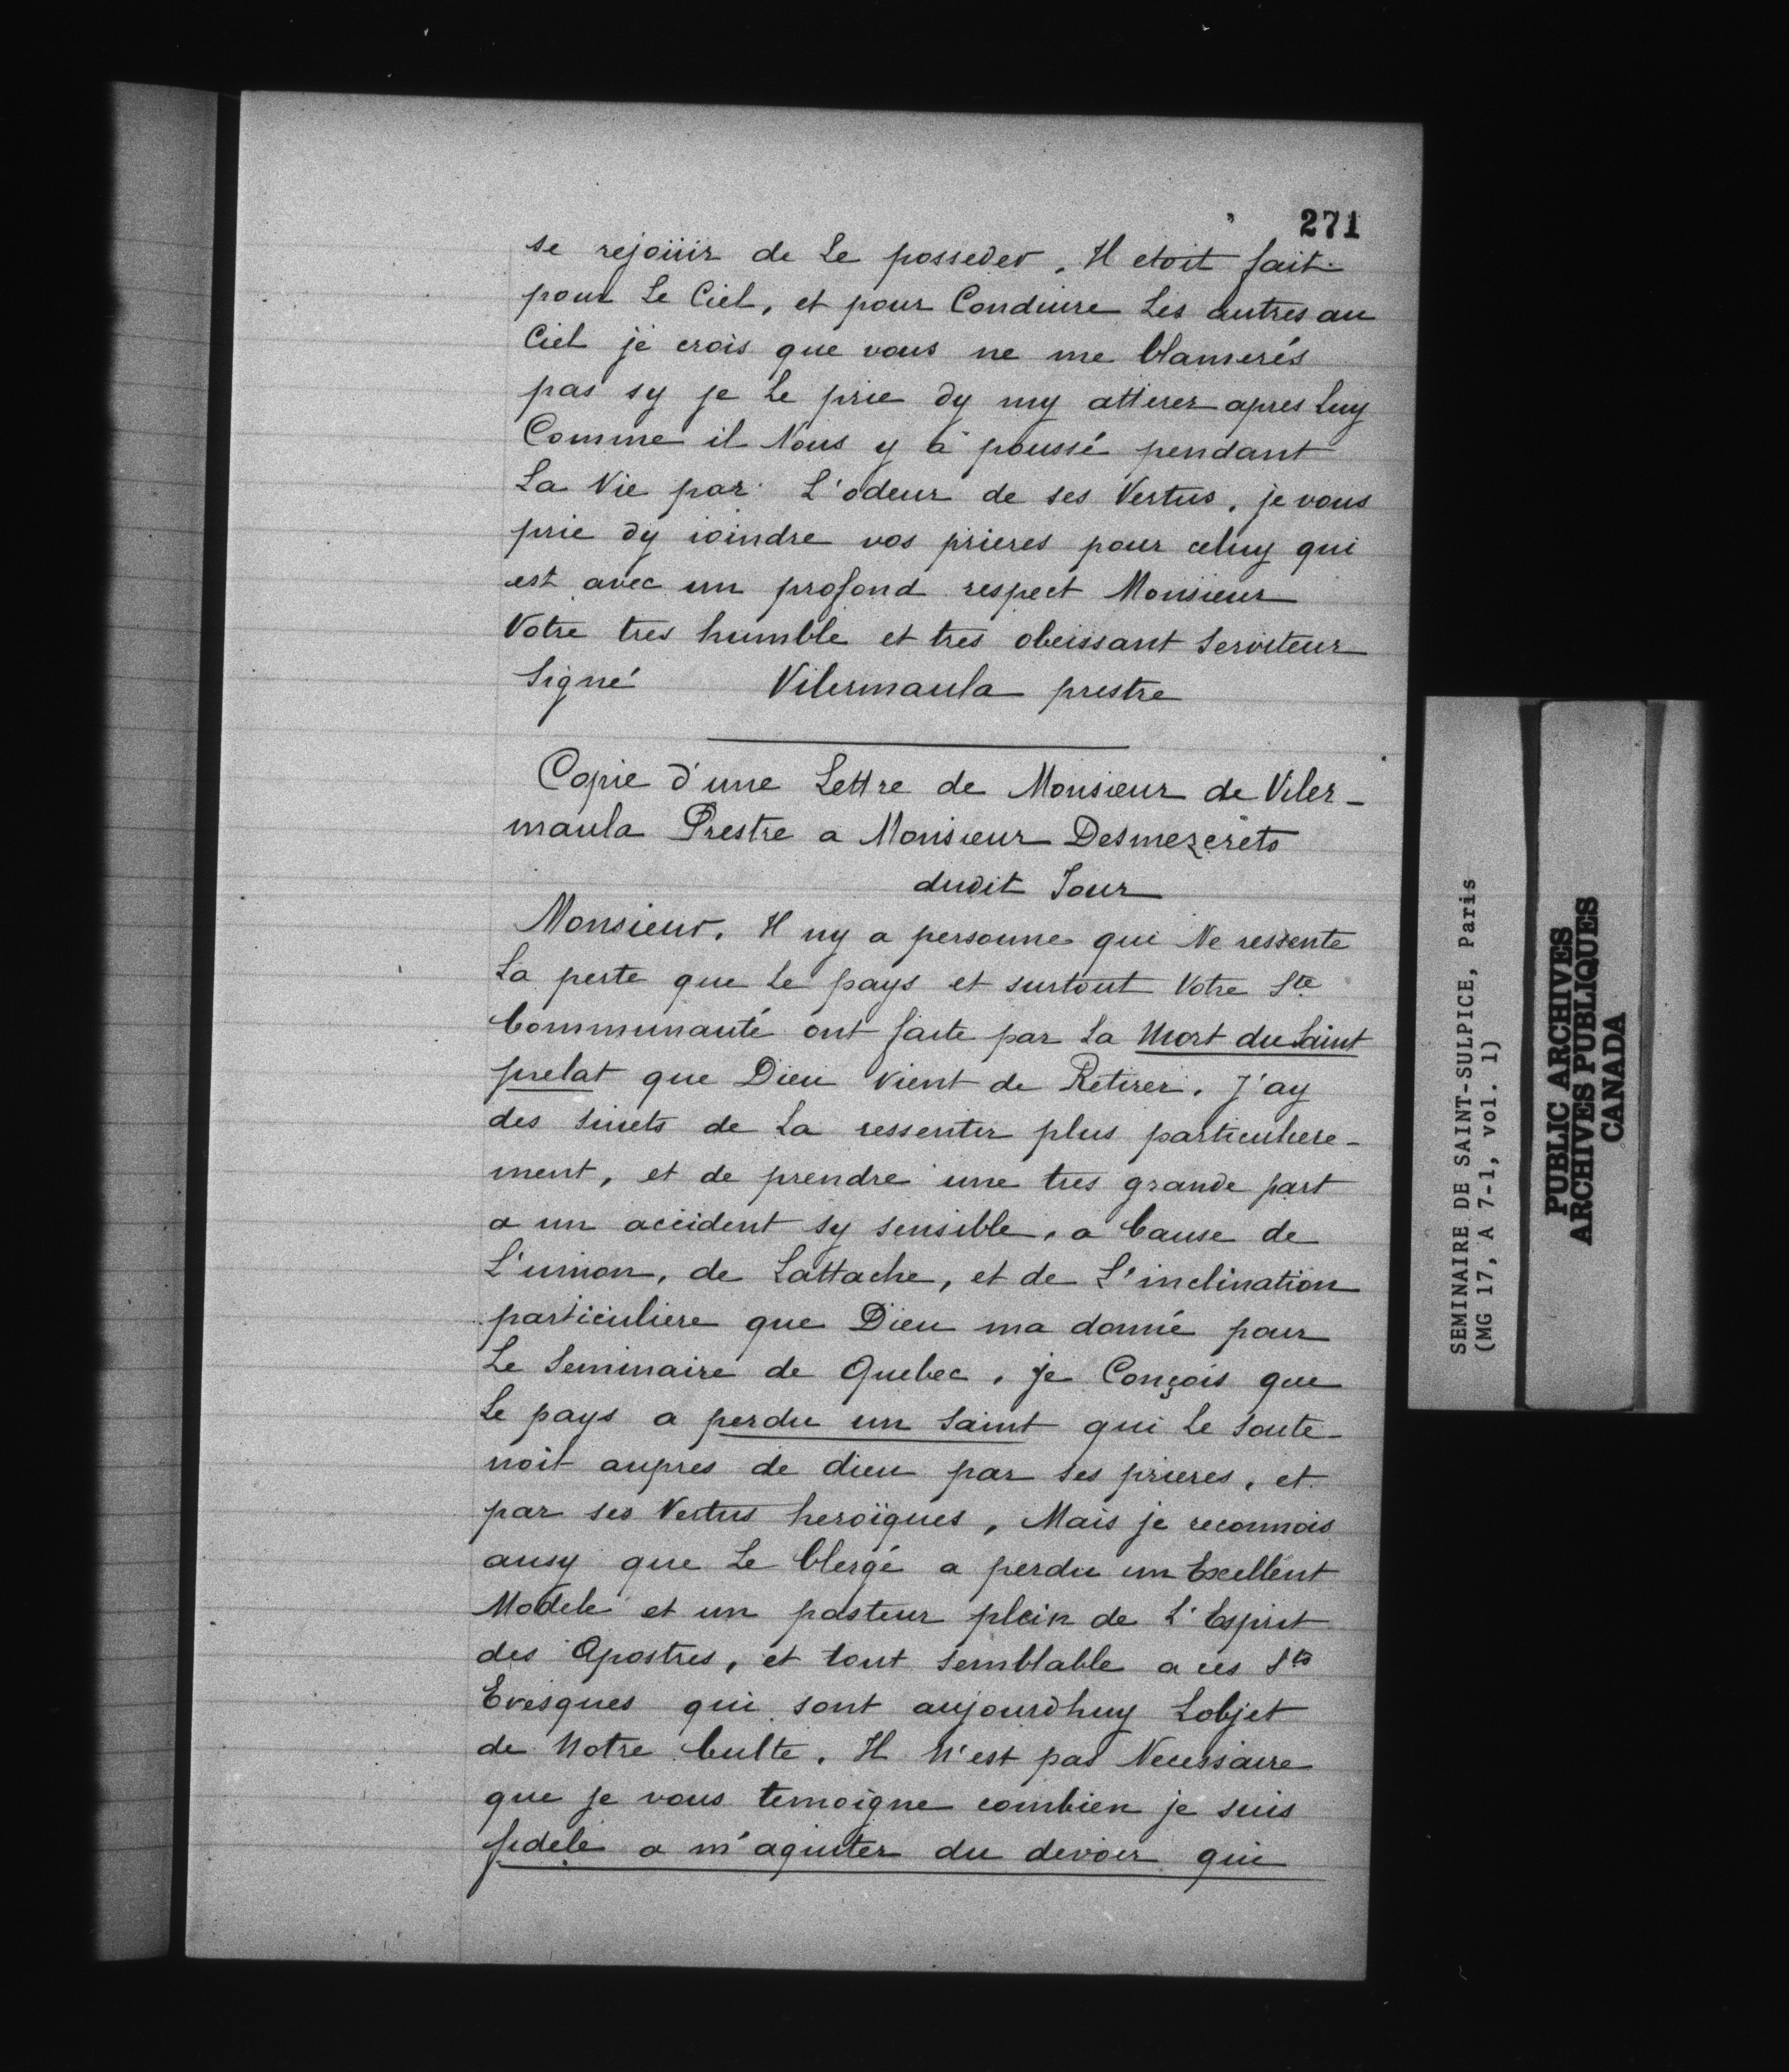 271
se rejoüir de Le posseder. Il etoit fait
pour Le Ciel, et pour Conduire Les autres au
Ciel je crois que vous ne me blamerés
pas sy je Le prie dy my attirer apres Luy
Comme il Nous y a poussé pendant
La Vie par L'odeur de ses Vertus, je vous
prie dy ioindre vos prieres pour celuy qui
est avec un profond respect Monsieur
Votre tres humble et tres obeissant Serviteur
Signé Vilermaula prestre
Copie d'une Lettre de Monsieur de Viler-
maula Prestre a Monsieur Desmezerets
dudit Jour
Monsieur. Il ny a personne qui Ne ressente
La perte que Le pays et surtout Votre Ste
Communauté ont faite par La Mort du Saint
prelat que Dieu Vient de Retirer. J'ay
des Suiets de La ressentir plus particuliere-
ment, et de prendre une tres grande part
a un accident sy sensible, a Cause de
L'union, de Lattache, et de L'inclination
particuliere que Dieu ma donné pour
Le Seminaire de Quebec, je Conçois que
Le pays a perdu un Saint qui Le Soute-
noit aupres de dieu par ses prieres, et
par ses Vertus heroïques, Mais je reconnois
ausy que Le Clergé a perdu un Excellent
Modele et un pasteur plein de L'Esprit
des Apostres, et tout Semblable a ces Sts
Evesques qui sont aujourdhuy Lobjet
de Notre Culte. Il N'est pas Necessaire
que je vous temoigne combien je suis
fidele a m'aquiter du devoir qui
SEMINAIRE DE SAINT-SULPICE, Paris
(MG 17, A 7-1, vol. 1)
PUBLIC ARCHIVES
ARCHIVES PUBLIQUES
CANADA